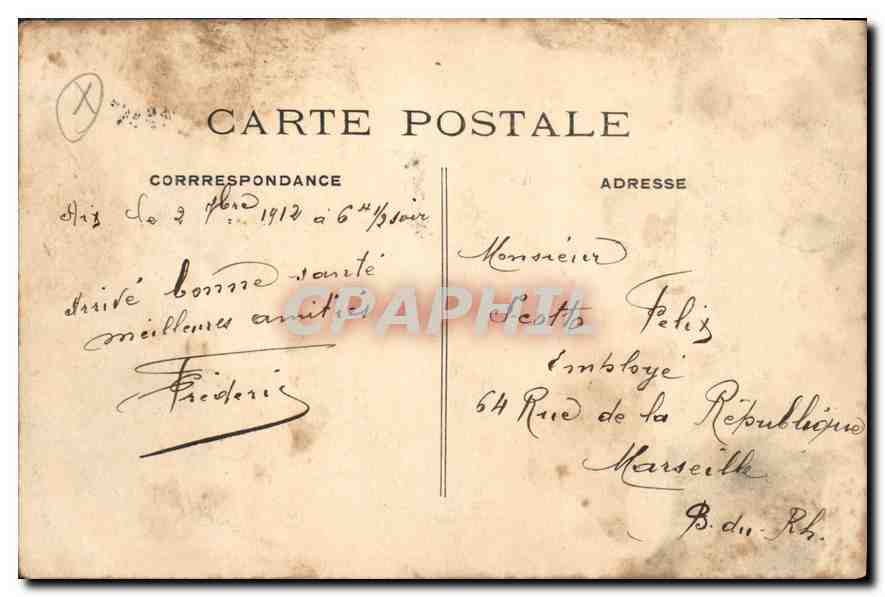 X
CARTE POSTALE
CORRRESPONDANCE
Aix le 2 7bre 1912 à 6 H 1/2 soir
Arrivé bonne santé
meilleures amitiés
Fréderic
ADRESSE
Monsiéur
Scotto Felix
Employé
64 Rue de la République
Marseille
B. du. Rh.
CPAPHIL